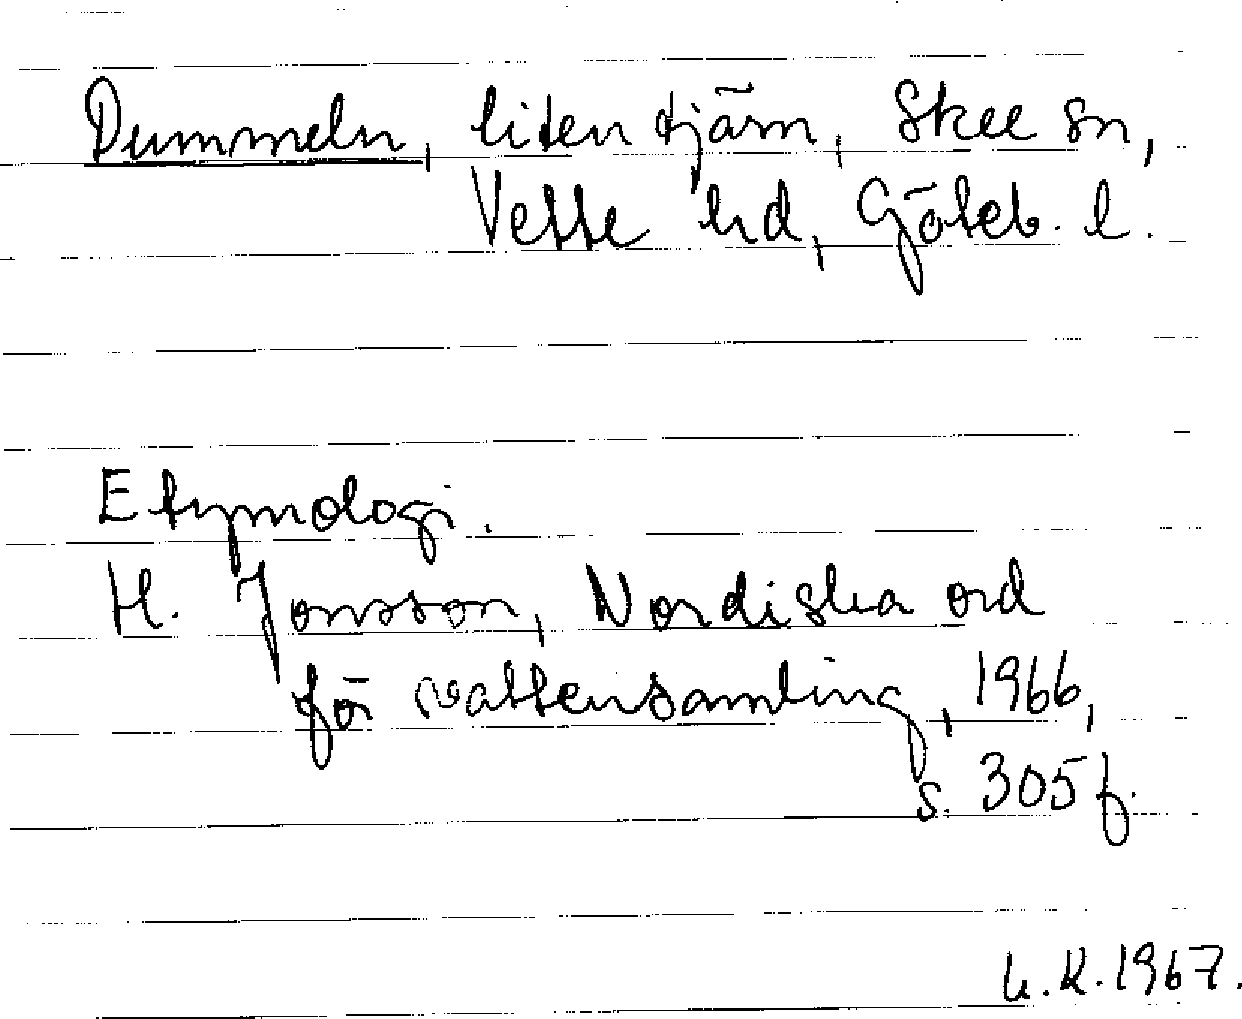 Dummeln, liten tjärn, Skee sn,
Vette hd, Göteb. l.
Etymologi.
H. Jonsson, Nordiska ord
för vattensamling, 1966,
s. 305 f.
K. 1967.